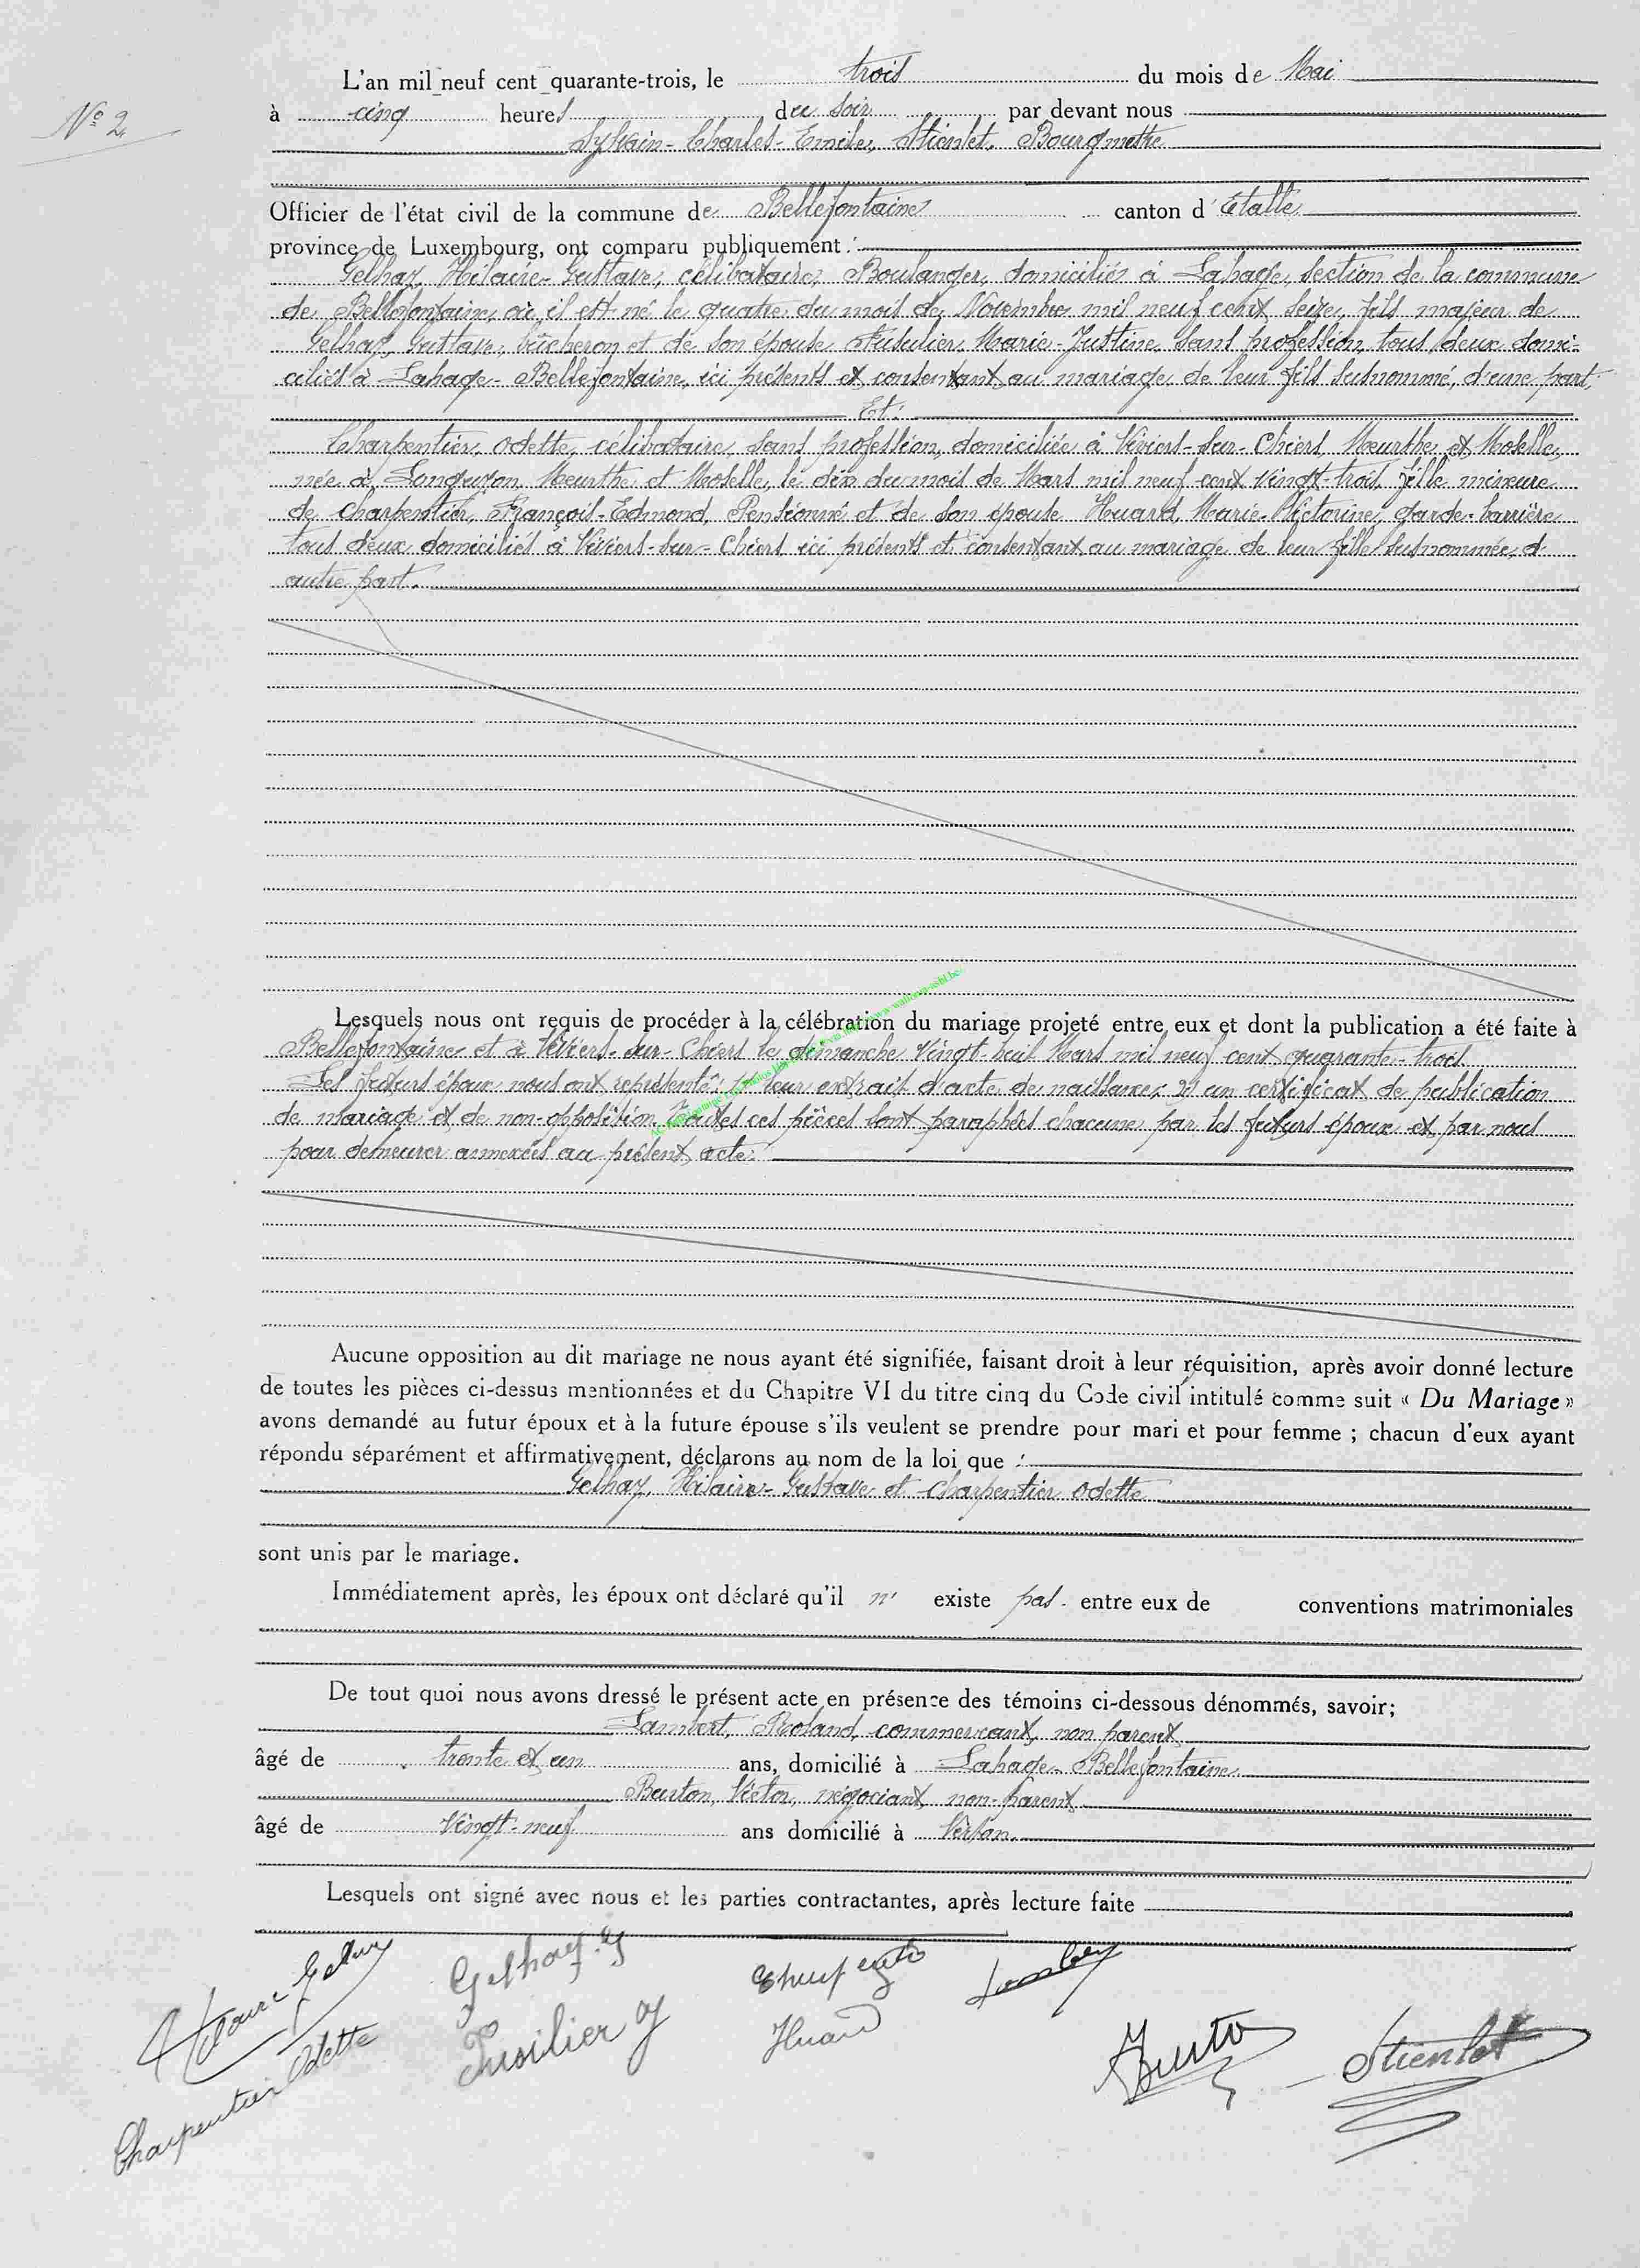 N° 2
L'an mil neuf cent quarante-trois, le trois du mois de Mai
à cinq heures du soir par devant nous
Sylvain-Charles-Emile, Stienlet, Bourgmestre
Officier de l'état civil de la commune de Bellefontaine canton d'Etalle
province de Luxembourg, ont comparu publiquement :
Gelhay, Hilaire-Gustave, célibataire, Boulanger, domicilié à Lahage, section de la commune
de Bellefontaine, où il est né le quatre du mois de Novembre mil neuf cent seize, fils majeur de
Gelhay, Gustave, bûcheron et de son épouse Fusulier, Marie-Justine, sans profession, tous deux domi-
ciliés à Lahage-Bellefontaine, ici présents et consentant au mariage de leur fils susnommé, d'une part,
Et:
Charpentier, Odette, célibataire, sans profession, domiciliée à Viviers-sur-Chiers, Meurthe et Moselle,
née à Longuyon, Meurthe et Moselle, le dix du mois de Mars mil neuf cent vingt-trois, fille mineure
de Charpentier, François-Edmond, Pensionné et de son épouse Huard, Marie-Victorine, garde-barrière
tous deux domiciliés à Viviers-sur-Chiers ici présents et consentant au mariage de leur fille susnommée, d'
autre part.
Lesquels nous ont requis de procéder à la célébration du mariage projeté entre eux et dont la publication a été faite à
Bellefontaine et à Viviers-sur-Chiers le dimanche vingt-huit Mars mil neuf cent quarante-trois.
Les futurs époux nous ont représenté: 1) leur extrait d'acte de naissance; 2) un certificat de publication
de mariage et de non-opposition. Toutes ces pièces sont paraphées chacune par les futurs époux et par nous
pour demeurer annexées au présent acte.
Aucune opposition au dit mariage ne nous ayant été signifiée, faisant droit à leur réquisition, après avoir donné lecture
de toutes les pièces ci-dessus mentionnées et du Chapitre VI du titre cinq du Code civil intitulé comme suit « Du Mariage »
avons demandé au futur époux et à la future épouse s'ils veulent se prendre pour mari et pour femme ; chacun d'eux ayant
répondu séparément et affirmativement, déclarons au nom de la loi que :
Gelhay, Hilaire-Gustave et Charpentier Odette
sont unis par le mariage.
Immédiatement après, les époux ont déclaré qu'il n' existe pas entre eux de conventions matrimoniales
De tout quoi nous avons dressé le présent acte en présence des témoins ci-dessous dénommés, savoir;
Lambert, Roland, commerçant, non parent
âgé de trente et un ans, domicilié à Lahage-Bellefontaine
Burton, Victor, négociant, non-parent
âgé de vingt-neuf ans domicilié à Virton.
Lesquels ont signé avec nous et les parties contractantes, après lecture faite
Hilaire Gelhay
Gelhay. G
Charpentier
Charpentier Odette
Fusilier J
Huard
Burton
Stienlet